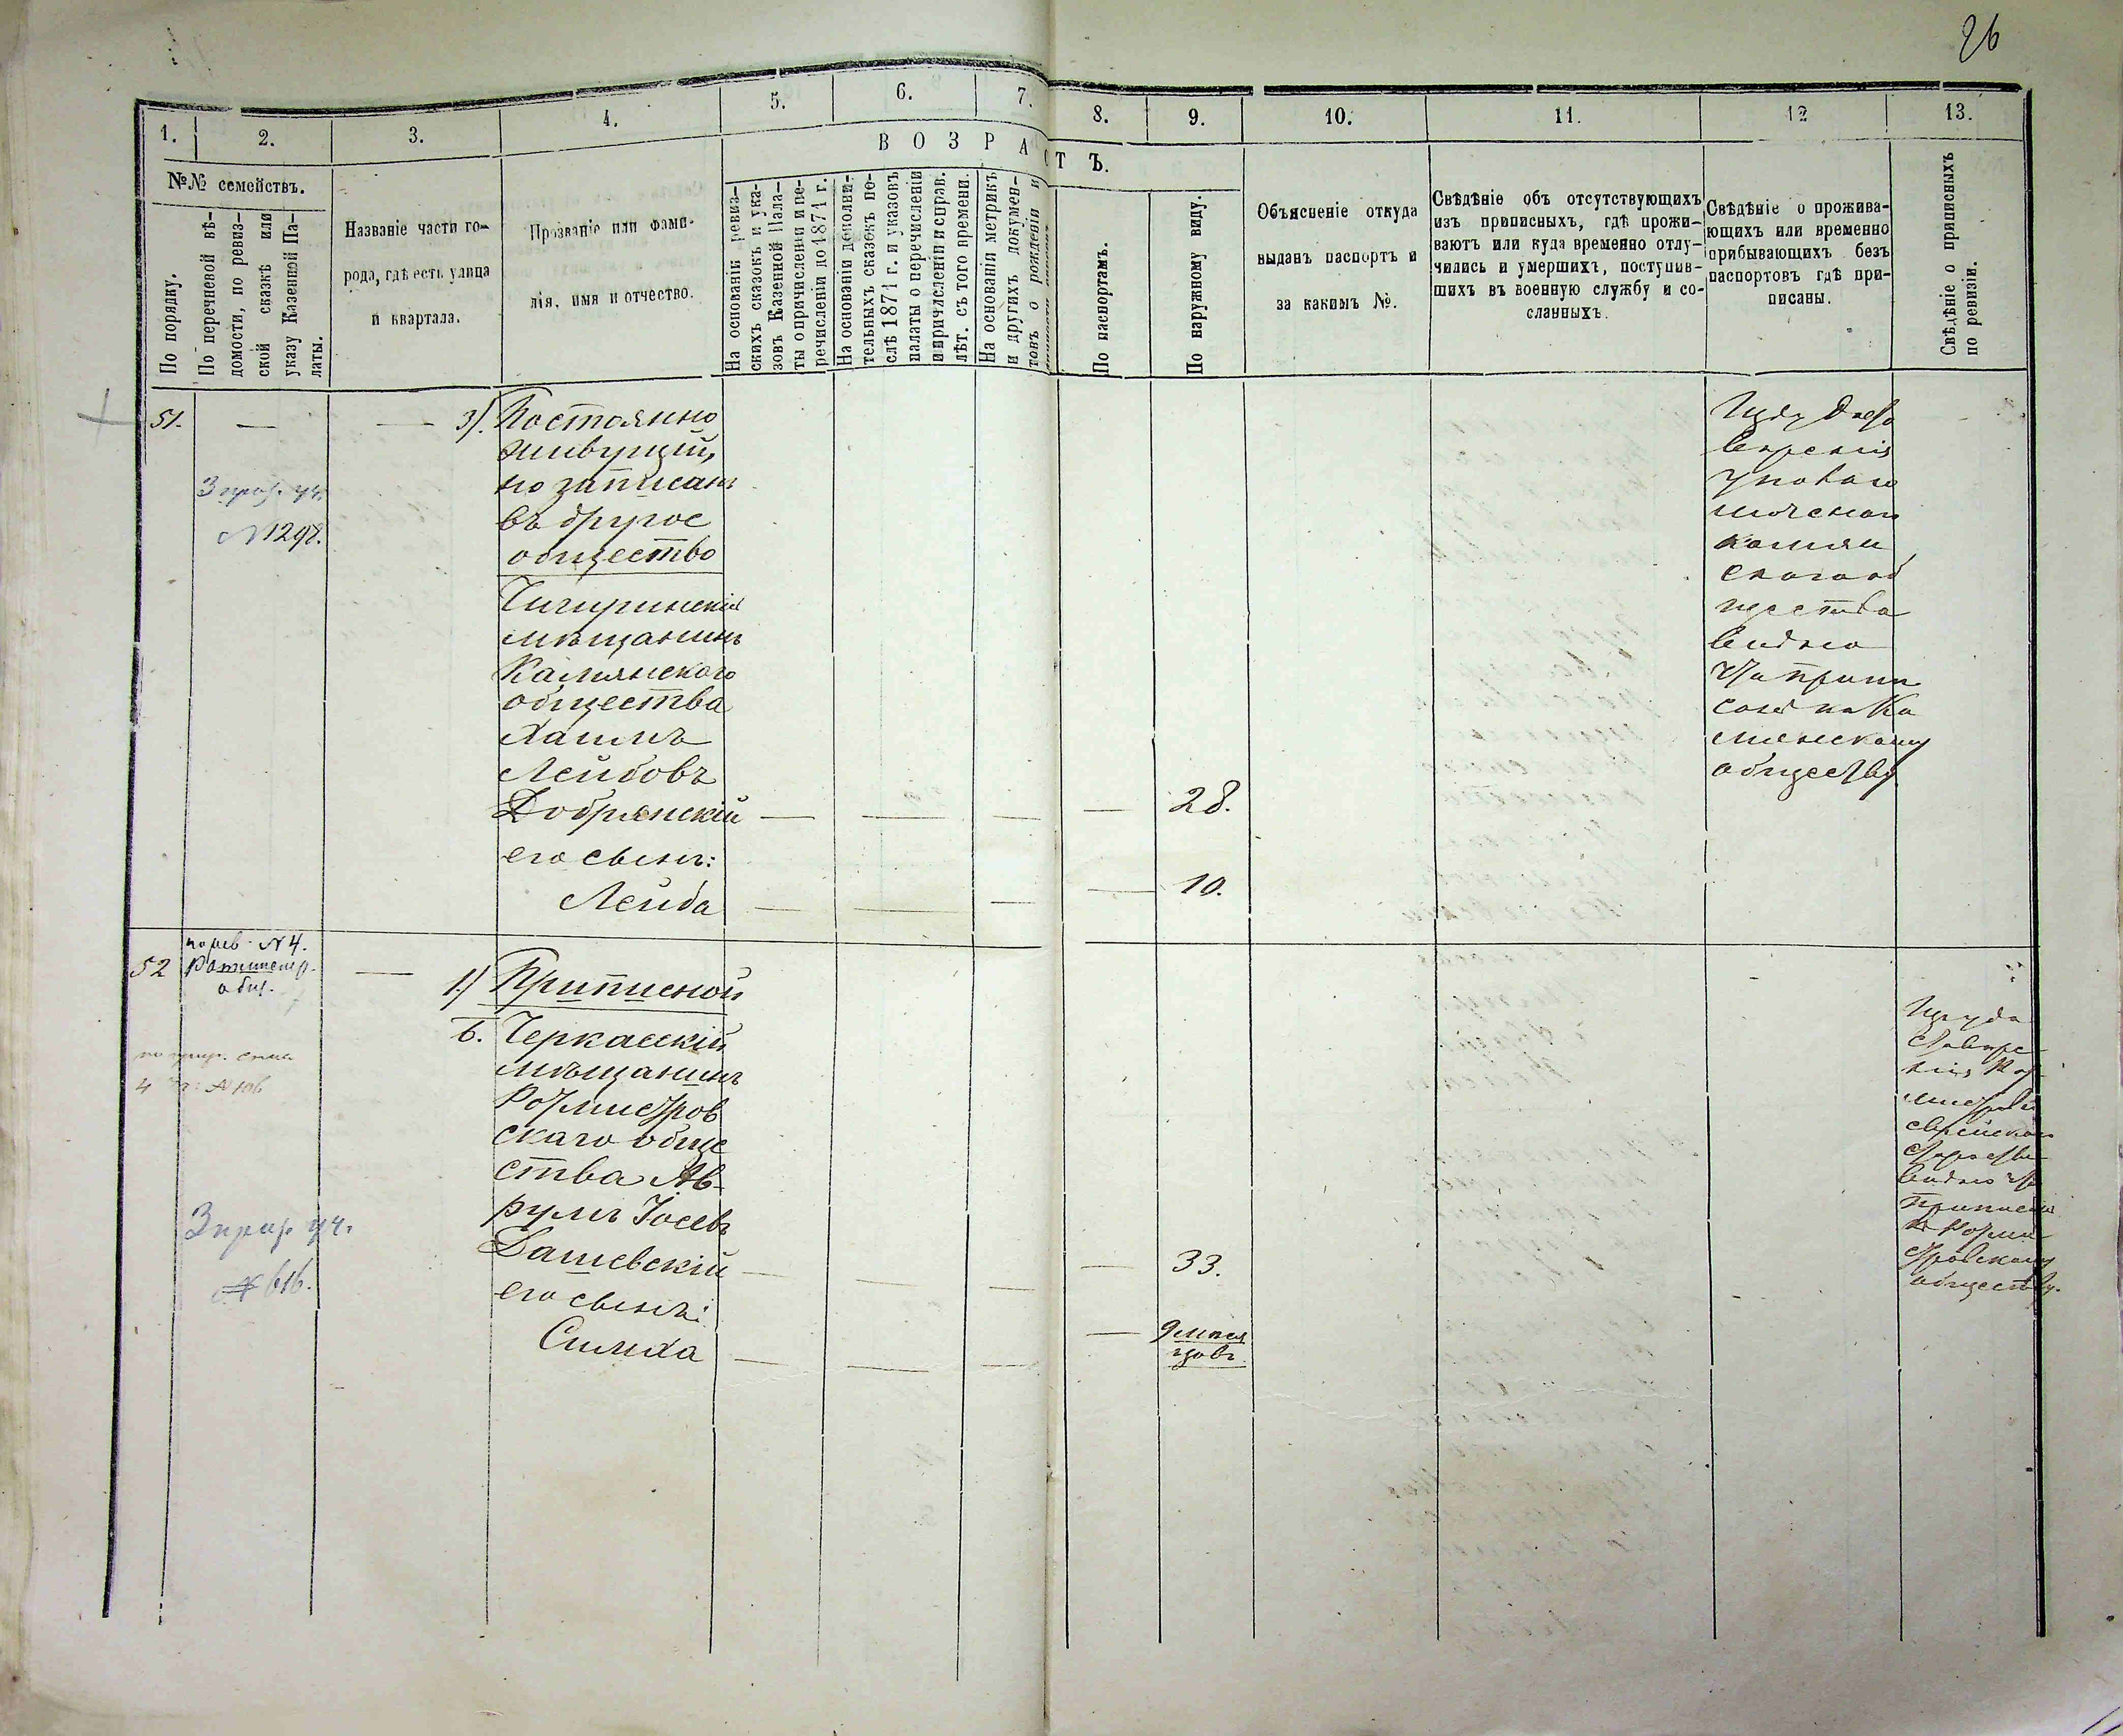 26
1.
2.
3.
4.
5.
6.
7.
8.
9.
10.
11.
12
13.
ВОЗРАСТЪ.
№№ семействъ.
По порядку.
По перечневой вѣ-
домости, по ревиз-
ской сказкѣ или
указу Казенной Па-
латы.
Названіе части го-
рода, гдѣ есть улица
и квартала.
Прозваніе или фами-
лія, имя и отчество.
На основаніи ревиз-
скихъ сказокъ и ука-
зовъ Казенной Пала-
ты о причисленіи и пе-
речисленіи до 1871 г.
На основаніи дополни-
тельныхъ сказокъ по-
слѣ 1871 г. и указовъ
палаты о перечисленіи
и причисленіи и справ.
лѣт. съ того времени.
На основаніи метрикъ
и другихъ докумен-
товъ о рожденіи и
По паспортамъ.
По наружному виду.
Объясненіе откуда
выданъ паспортъ и
за какимъ №.
Свѣдѣніе объ отсутствующихъ
изъ приписныхъ, гдѣ прожи-
ваютъ или куда временно отлу-
чились и умершихъ, поступив-
шихъ въ военную службу и со-
сланныхъ.
Свѣдѣніе о прожива-
ющихъ или временно
прибывающихъ безъ
паспортовъ гдѣ при-
писаны.
Свѣдѣніе о приписныхъ
по ревизіи.
51.
—
—
3 уч.
№ 1298.
3). Постоянно
живущій,
но записанъ
въ другое
общество
Чигиринскій
мѣщанинъ
Камянского
общества
Хаимъ
Лейбовъ
Добрянскій — — — — 28.
его сынъ:
Лейба — — — — 10.
Изъ
скаго об
щества
видно
что припи
санъ къ Ка
мянскому
обществу
52
№ 4.
общ.
—
1) Приписной
б. Черкасскій
мѣщанинъ
Ротмистров
скаго обще
ства Ав-
румъ Іосевъ
Дашевскій — — — — 33.
его сынъ:
Симха — — — — 9 мѣся
цовъ
3 уч.
№ 616.
еврейскаго
видно что
приписанъ
къ Ротми
стровскому
обществу.